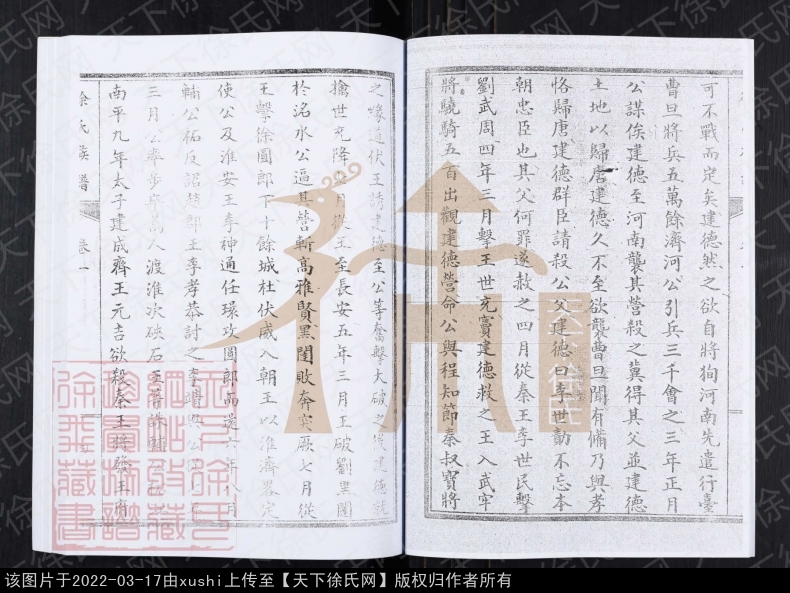 可不戰而定矣建德然之欲自將狥河南先遣行臺
曹旦將兵五萬餘濟河公引兵三千會之三年正月
公謀俟建德至河南襲其營殺之冀得其父並建德
土地以歸唐建德久不至欲襲曹旦聞有備乃與孝
恪歸唐建德群臣請殺公父建德曰李世勣不忘本
朝忠臣也其父何罪遂赦之四月從秦王李世民擊
劉武周四年三月擊王世充竇建德救之王入武牢
將驍騎五百出觀建德營命公與程知節秦叔寶將
之緣道伏王誘建德至公等奮擊大破之
擒世充降
月從王至長安五年三月王破劉黑闥
於洺水公逼其營斬高雅賢黑闥敗奔突厥七月從
王擊徐圓郎下十餘城杜伏威入朝王以淮濟畧定
使公及淮安王李神通任瓌攻圓郎
月
輔公祏反詔趙郡王李孝恭討之李靖
三月公率步卒
萬人渡淮次硤石
南平九年太子建成齊王元吉欲殺秦王
徐氏族譜
卷一
天下徐氏网
该图片于2022-03-17由xushi上传至【天下徐氏网】版权归作者所有